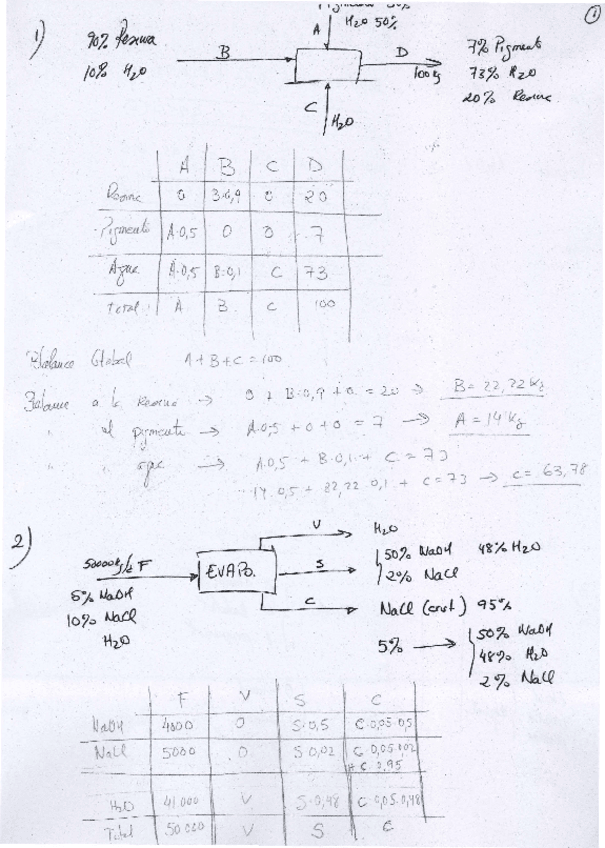 1
1)
H2O 50%
A
90% Resina
10% H2O
B
D
100 kg
7% Pigment
73% H2O
20% Resina
C
H2O
A B C D
Resina 0 B·0,9 0 20
Pigmento A·0,5 0 0 7
Agua A·0,5 B·0,1 C 73
Total A B C 100
Balance Global A + B + C = 100
Balance a la Resina → 0 + B·0,9 + 0 = 20 → B = 22,22 kg
" al pigmento → A·0,5 + 0 + 0 = 7 → A = 14 kg
" " agua → A·0,5 + B·0,1 + C = 73
14·0,5 + 22,22·0,1 + C = 73 → C = 63,78
2)
50000 kg/h F
5% NaOH
10% NaCl
H2O
EVAPO.
V
H2O
S
50% NaOH 48% H2O
2% NaCl
C
NaCl (crist) 95%
5% → 50% NaOH
48% H2O
2% NaCl
F V S C
NaOH 4000 0 S·0,5 C·0,05·0,5
NaCl 5000 0 S·0,02 C·0,05·0,02
+ C·0,95
H2O 41.000 V S·0,48 C·0,05·0,48
Total 50.000 V S C